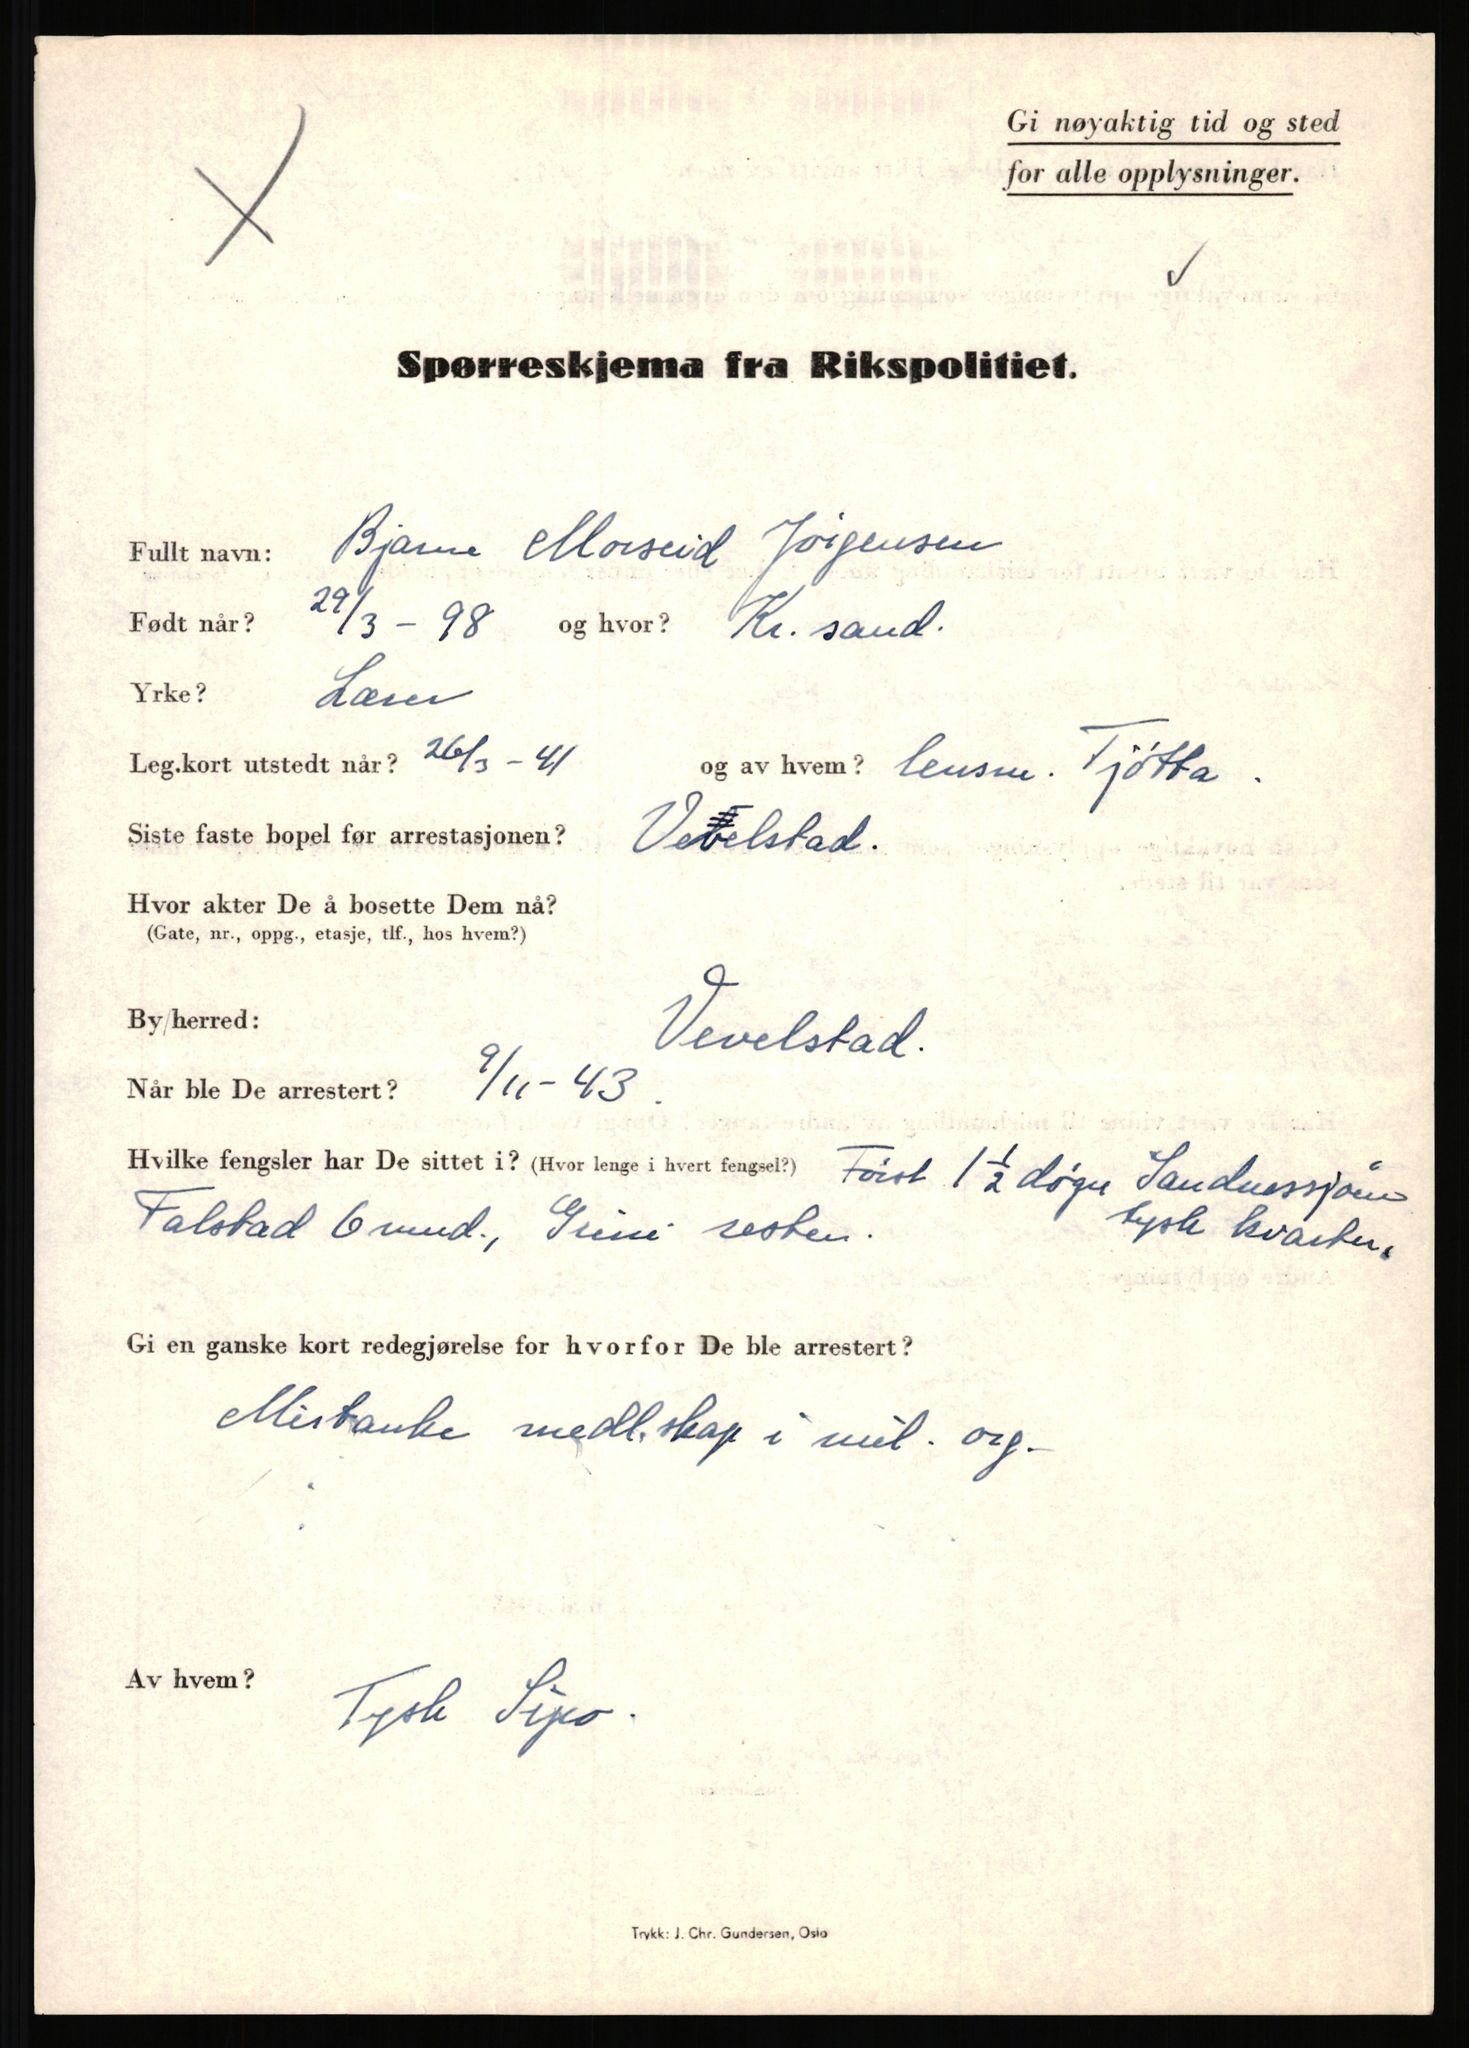 Gi nøyaktig tid og sted
for alle opplysninger.
✓
Spørreskjema fra Rikspolitiet.
Fullt navn: Bjarne Morseid Jørgensen
Født når? 29/3 - 98 og hvor? Kr. sand.
Yrke? Lærer
Leg.kort utstedt når? 26/3 - 41 og av hvem? lensm. Tjøtta.
Siste faste bopel før arrestasjonen? Vevelstad.
Hvor akter De å bosette Dem nå?
(Gate, nr., oppg., etasje, tlf., hos hvem?)
By/herred: Vevelstad.
Når ble De arrestert? 9/11 - 43.
Hvilke fengsler har De sittet i? (Hvor lenge i hvert fengsel?) Først 1 1/2 døgn Sandnessjøen
Falstad 6 mnd., Grini resten. tysk kvarter.
Gi en ganske kort redegjørelse for hvorfor De ble arrestert?
Mistanke medl.skap i mil. org.
Av hvem? Tysk Sipo.
Trykk: J. Chr. Gundersen, Oslo